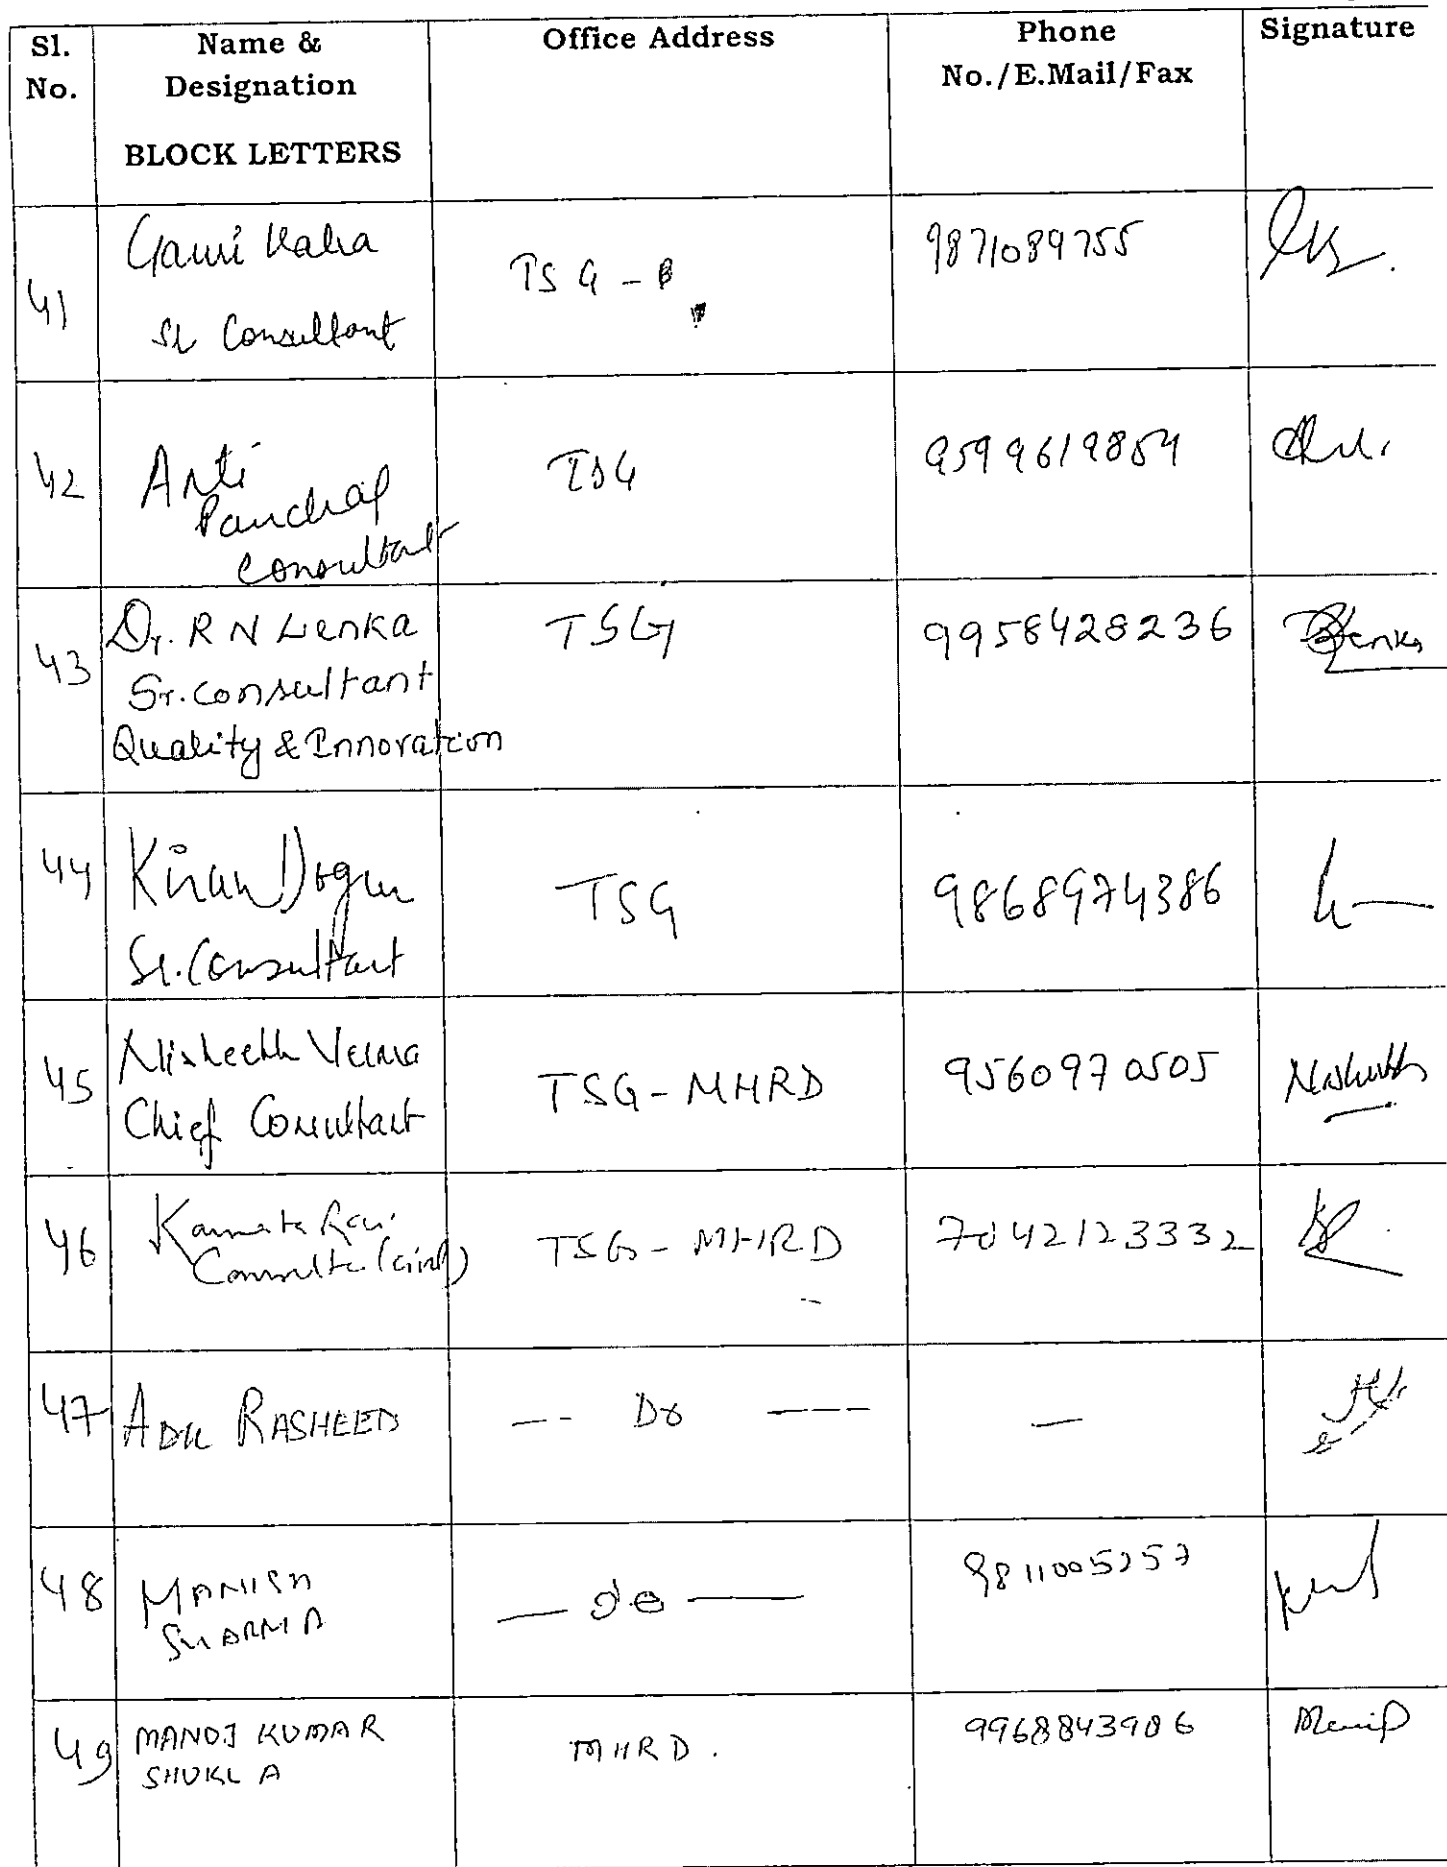 Sl. No.
Name & Designation
BLOCK LETTERS
Office Address
Phone No./E.Mail/Fax
Signature
41
Gauri
Sr Consultant
TSG - B
9871089755
42
Arti
Panchal
Consultant
TSG
9599619854
43
Dr. R N Lenka
Sr. Consultant
Quality & Innovation
TSG
9958428236
44
Kiran Dogra
Sr. Consultant
TSG
9868974386
45
Nisheeth Verma
Chief Consultant
TSG - MHRD
9560970505
46
TSG - MHRD
7042123332
47
RASHEED
-- Do ---
—
48
MANISH
SHARMA
— do —
49
MANOJ KUMAR
SHUKLA
MHRD.
9968843906